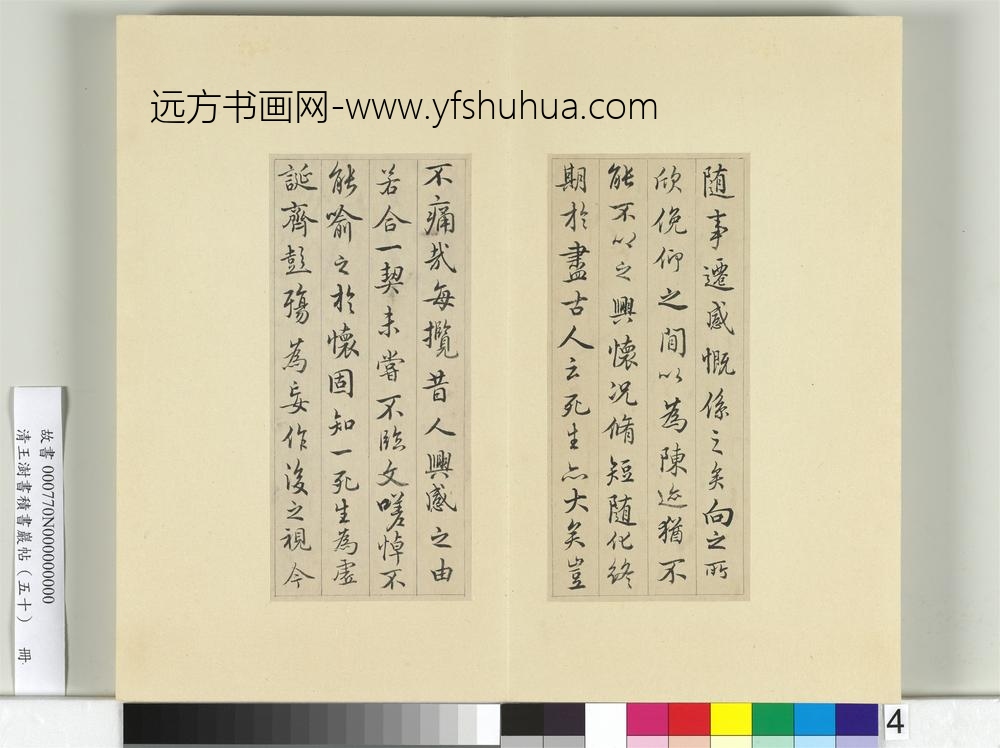 远方书画网-www.yfshuhua.com
随事遷感慨係之矣向之所
欣俛仰之間以為陳迹猶不
能不以之興懷况脩短随化終
期於盡古人云死生亦大矣豈
不痛哉每攬昔人興感之由
若合一契未嘗不臨文嗟悼不
能喻之於懷固知一死生為虚
誕齊彭殤為妄作後之視今
故書 000770N000000000
清王澍書積書巖帖（五十） 冊
4